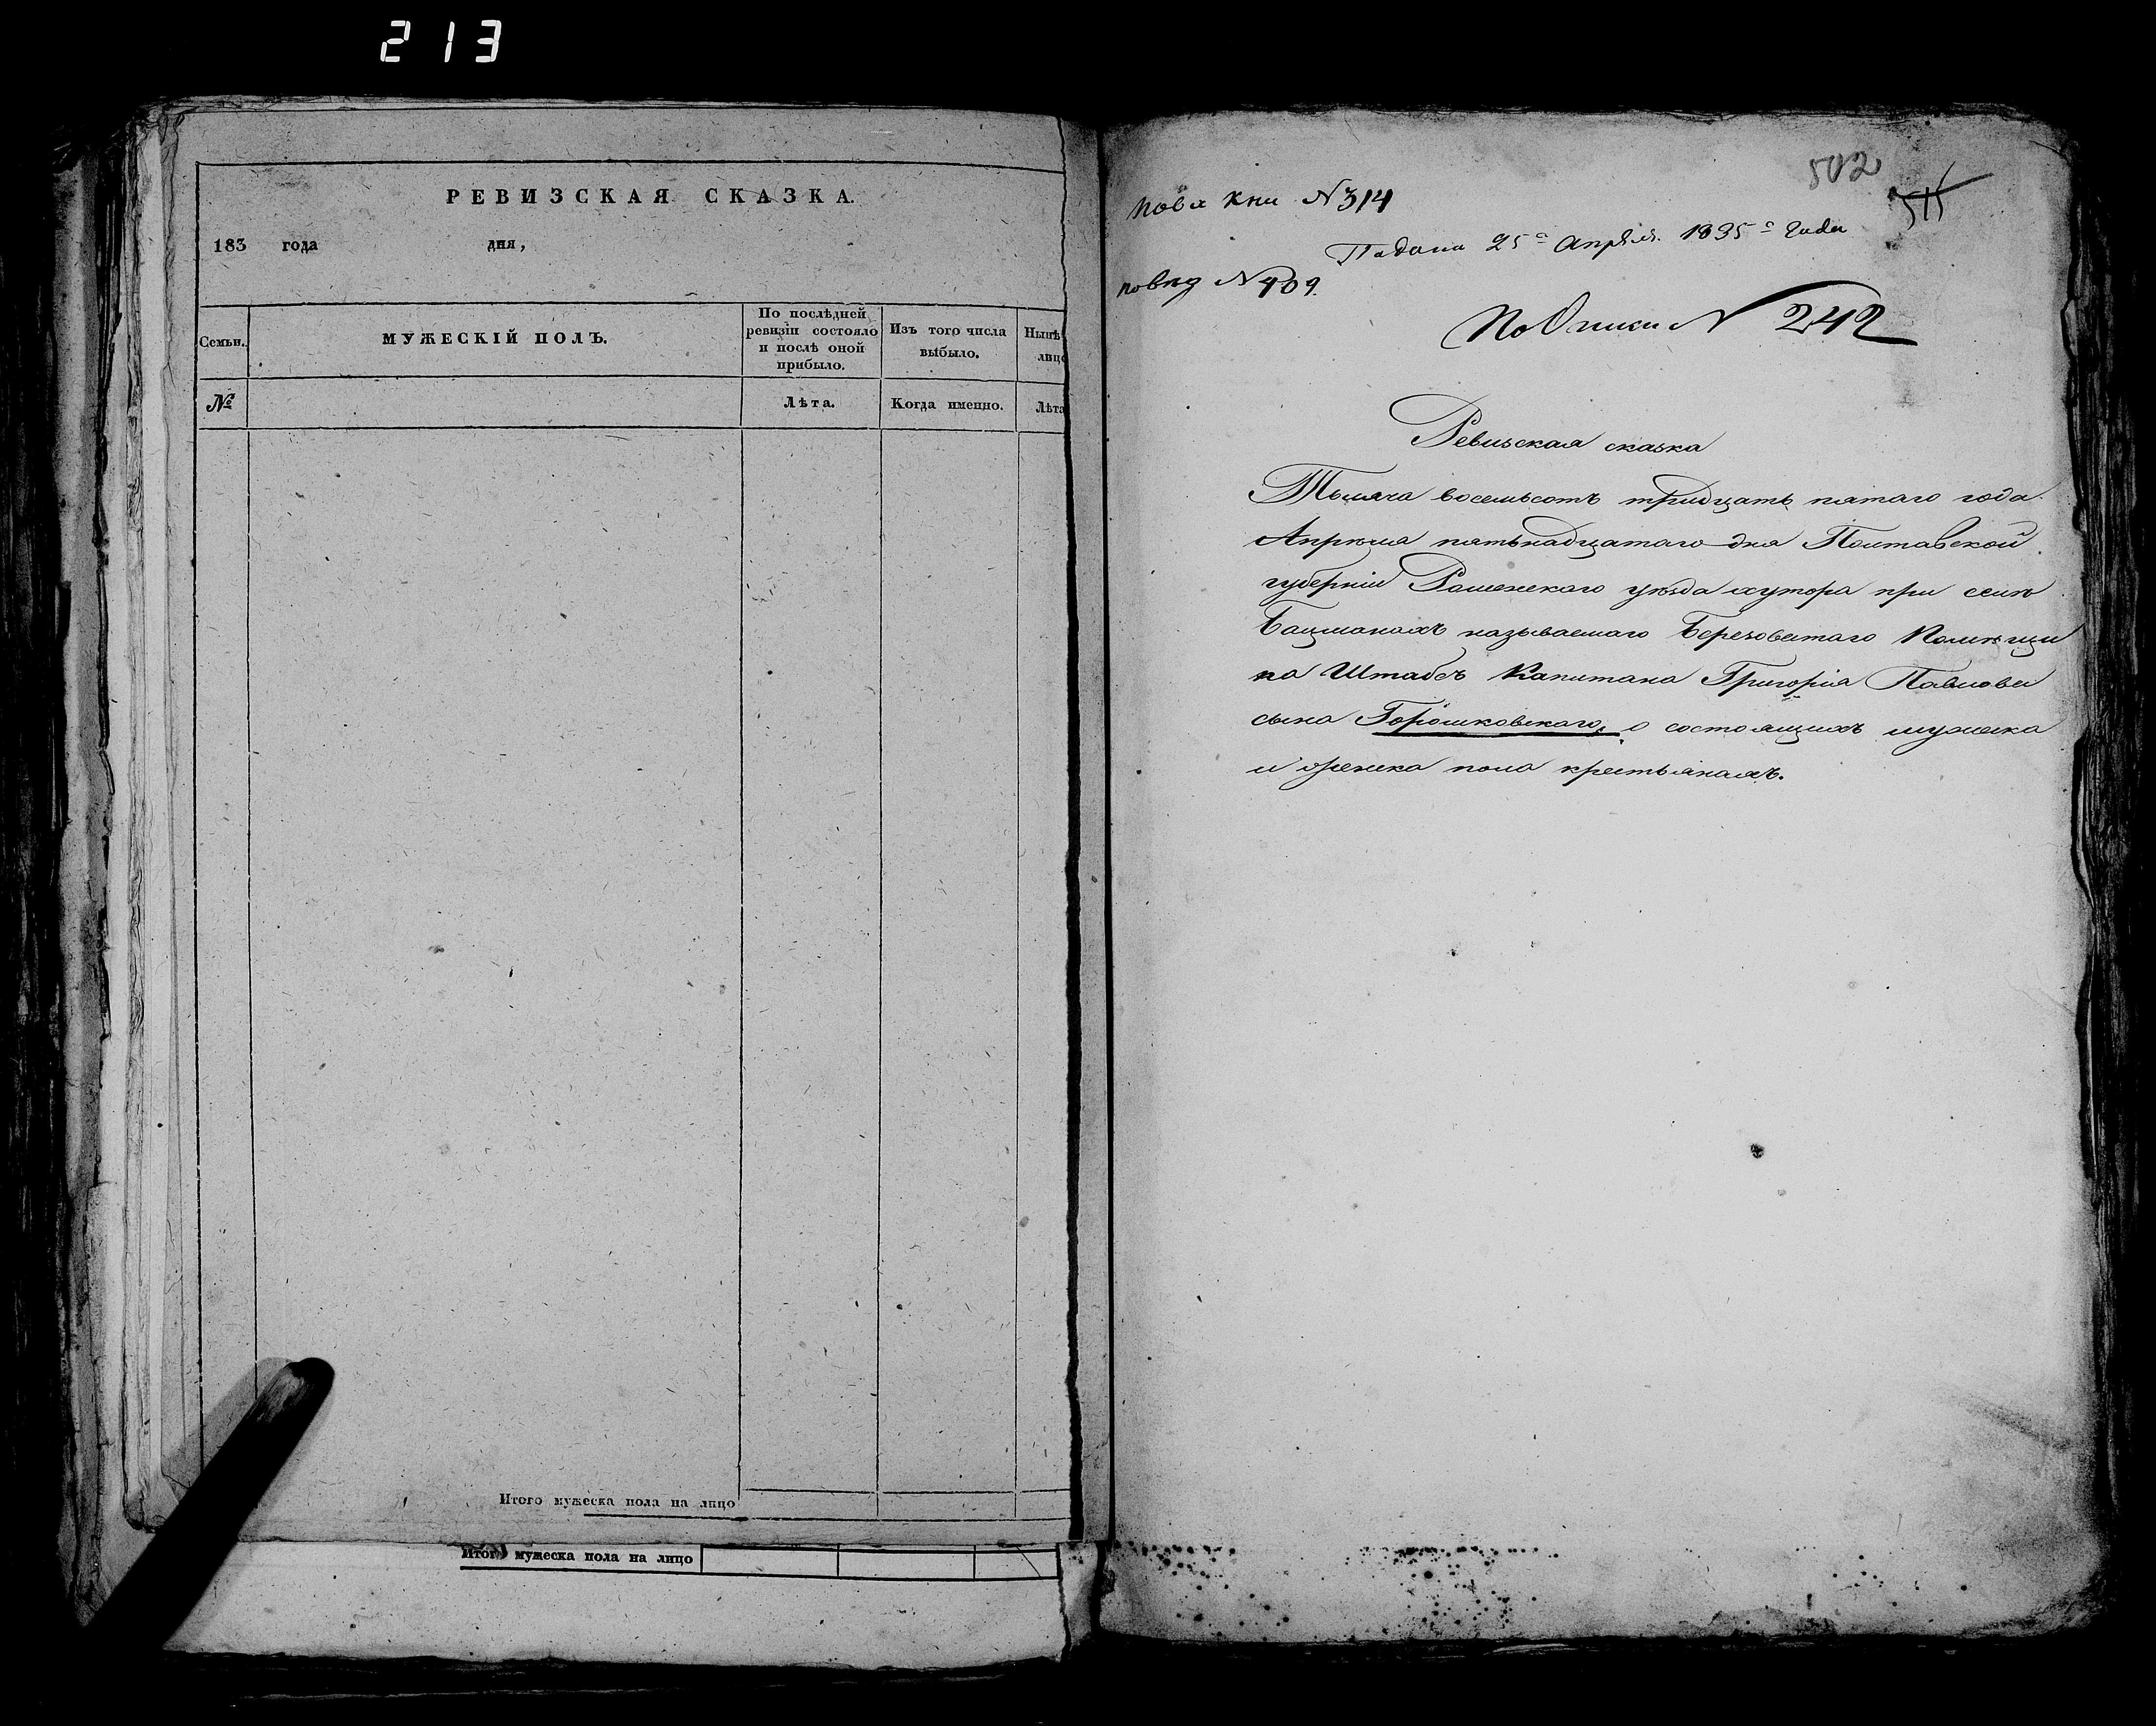 213
РЕВИЗСКАЯ СКАЗКА.
183 года дня,
Семьи.
МУЖЕСКІЙ ПОЛЪ.
По послѣдней
ревизіи состояло
и послѣ оной
прибыло.
Изъ того числа
выбыло.
Нынѣ
лицо
№
Лѣта.
Когда именно.
Лѣта
Итого мужеска пола на лицо
Итого мужеска пола на лицо
502
515
По вх кни N 314
Подана 25го Апрѣля 1835го Года
N 409.
N 242
Ревизская сказка
Тысяча восемьсотъ тридцать пятаго года
Апрѣля пятьнадцатаго дня Полтавской
губерніи Роменскаго уѣзда хутора при селѣ
Бацманахъ называемаго Березоватаго Помѣщи
ка Штабсъ Капитана Григорія Павлова
сына Горошковскаго, о состоящихъ мужеска
и женска пола крестьянахъ.